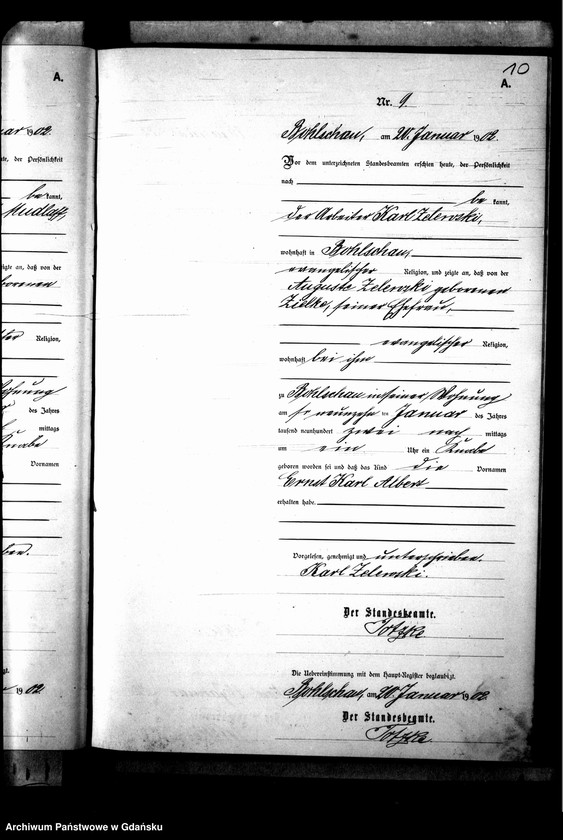 10
A.
A.
Nr. 9
Bohlschau, am 20. Januar 1902.
Vor dem unterzeichneten Standesbeamten erschien heute, der Persönlichkeit
nach
be kannt,
der Arbeiter Karl Zelewski,
wohnhaft in Bohlschau,
evangelischer Religion, und zeigte an, daß von der
Auguste Zelewski geborenen
Zielke, seiner Ehefrau,
evangelischer Religion,
wohnhaft bei ihm
zu Bohlschau in seiner Wohnung
am neunzehn ten Januar des Jahres
tausend neunhundert zwei nach mittags
um ein Uhr ein Knabe
geboren worden sei und daß das Kind die Vornamen
Ernst Karl Albert
erhalten habe.
Vorgelesen, genehmigt und unterschrieben.
Karl Zelewski.
Der Standesbeamte.
Totzke
Die Uebereinstimmung mit dem Haupt-Register beglaubigt.
Bohlschau, am 20. Januar 1902.
Der Standesbeamte.
Totzke
uar 1902.
te, der Persönlichkeit
be kannt,
Mudlaff,
zeigte an, daß von der
borenen
Religion,
Wohnung
des Jahres
mittags
Knabe
Vornamen
ben.
1902.
Archiwum Państwowe w Gdańsku